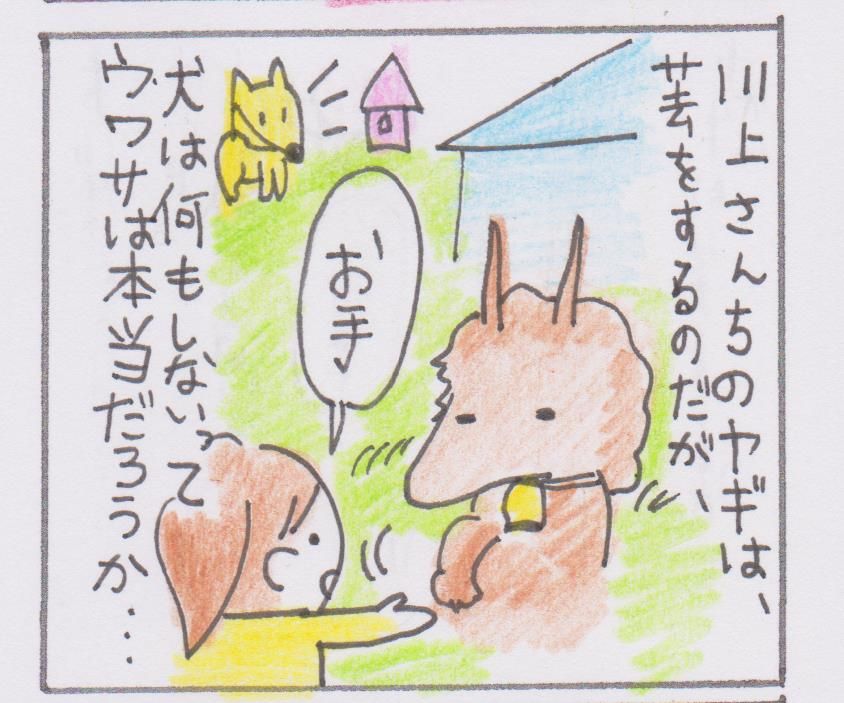 川上さんちのヤギは、
芸をするのだが、
お手
犬は何もしないって
ウワサは本当だろうか…